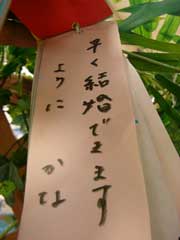 早く結婚できます
ように かな